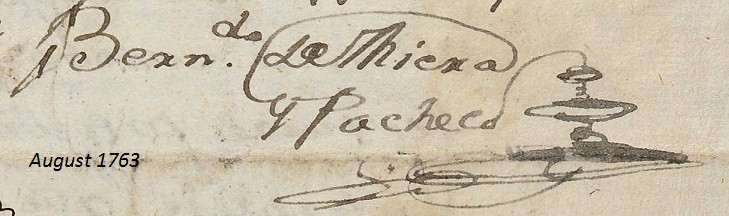 Bern.do de Miera
y Pacheco
August 1763